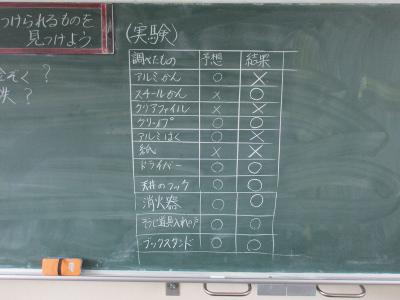 つけられるものを
見つけよう
ぞく?
失?
(実験)
調べたもの 予想 結果
アルミかん ○ ×
スチールかん × ○
クリアファイル × ×
クリップ ○ ○
アルミはく ○ ×
紙 × ×
ドライバー ○ ○
天井のフック ○ ○
消火器 ○ ○
そうじ道具入れの戸 ○ ○
ブックスタンド ○ ○